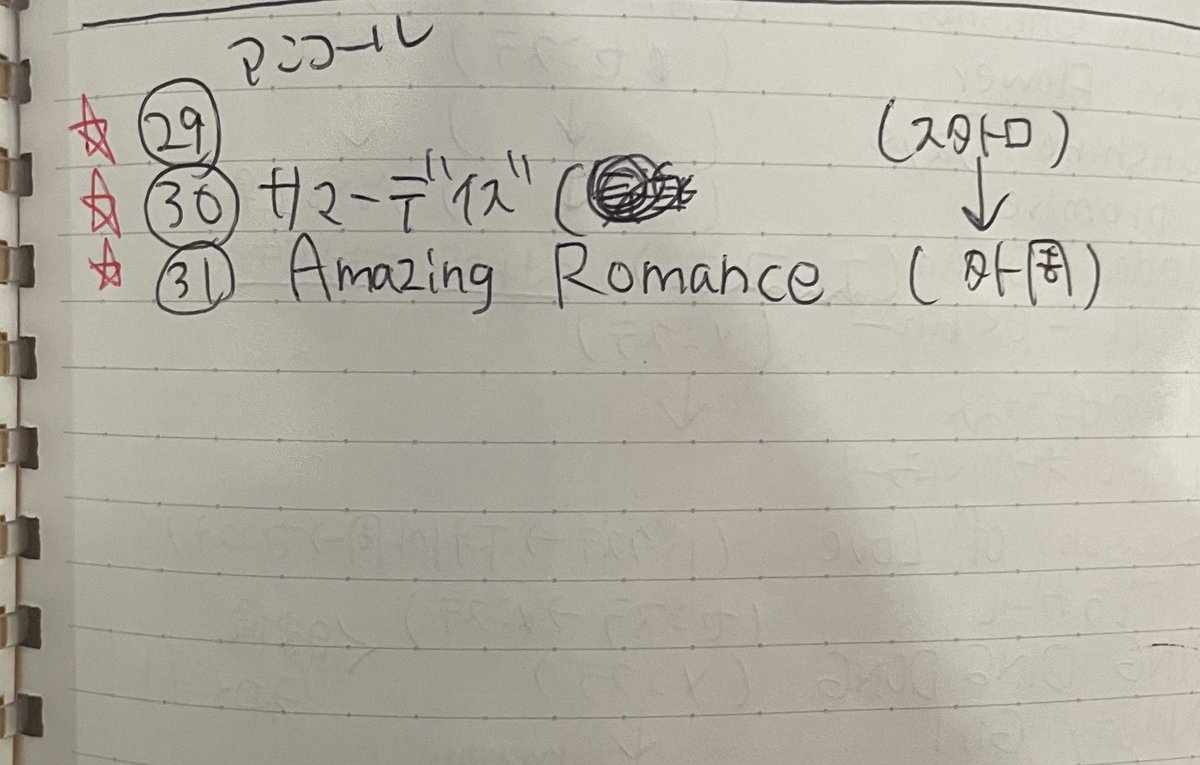 アンコール
☆ 29 (スタトロ)
☆ 30 サマーデイズ (
↓
☆ 31 Amazing Romance (外周)